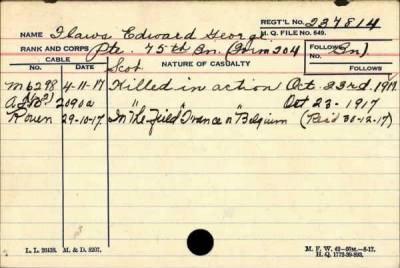 REGT'L NO. 237814
NAME Edward George H. Q. FILE NO. 649.
RANK AND CORPS Pte. 75th Bn. (From 204 Bn)
FOLLOWS
CABLE NATURE OF CASUALTY FOLLOWS
NO. DATE
M6298 4-11-17 Killed in action Oct. 23rd. 1917
2090a Oct 23-1917
Rouen 29-10-17 In "The Field" France or Belgium (Rec'd 30-12-17)
L. L. 20428. M. & D. 8207.
M. F. W. 42—50M.—8-17.
H. Q. 1772-39-893.